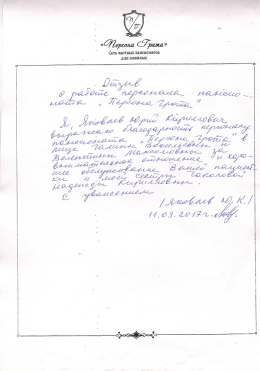 «Персона Грата»
Сеть частных пансионатов
для пожилых
Отзыв
о работе персонала пансио-
ната „Персона грата"
Я, Яковлев Юрий Кириллович
выражаю благодарность персоналу
пансионата „Персона грота" в
лице Галины Васильевны и
Валентины Михайловны за
внимательное отношение и хоро-
шее обслуживание Вашей пациент-
ки и моей сестры Соколовой
Надежды Кирилловны.
С уважением
/Яковлев Ю.К/
11.03.2017г.